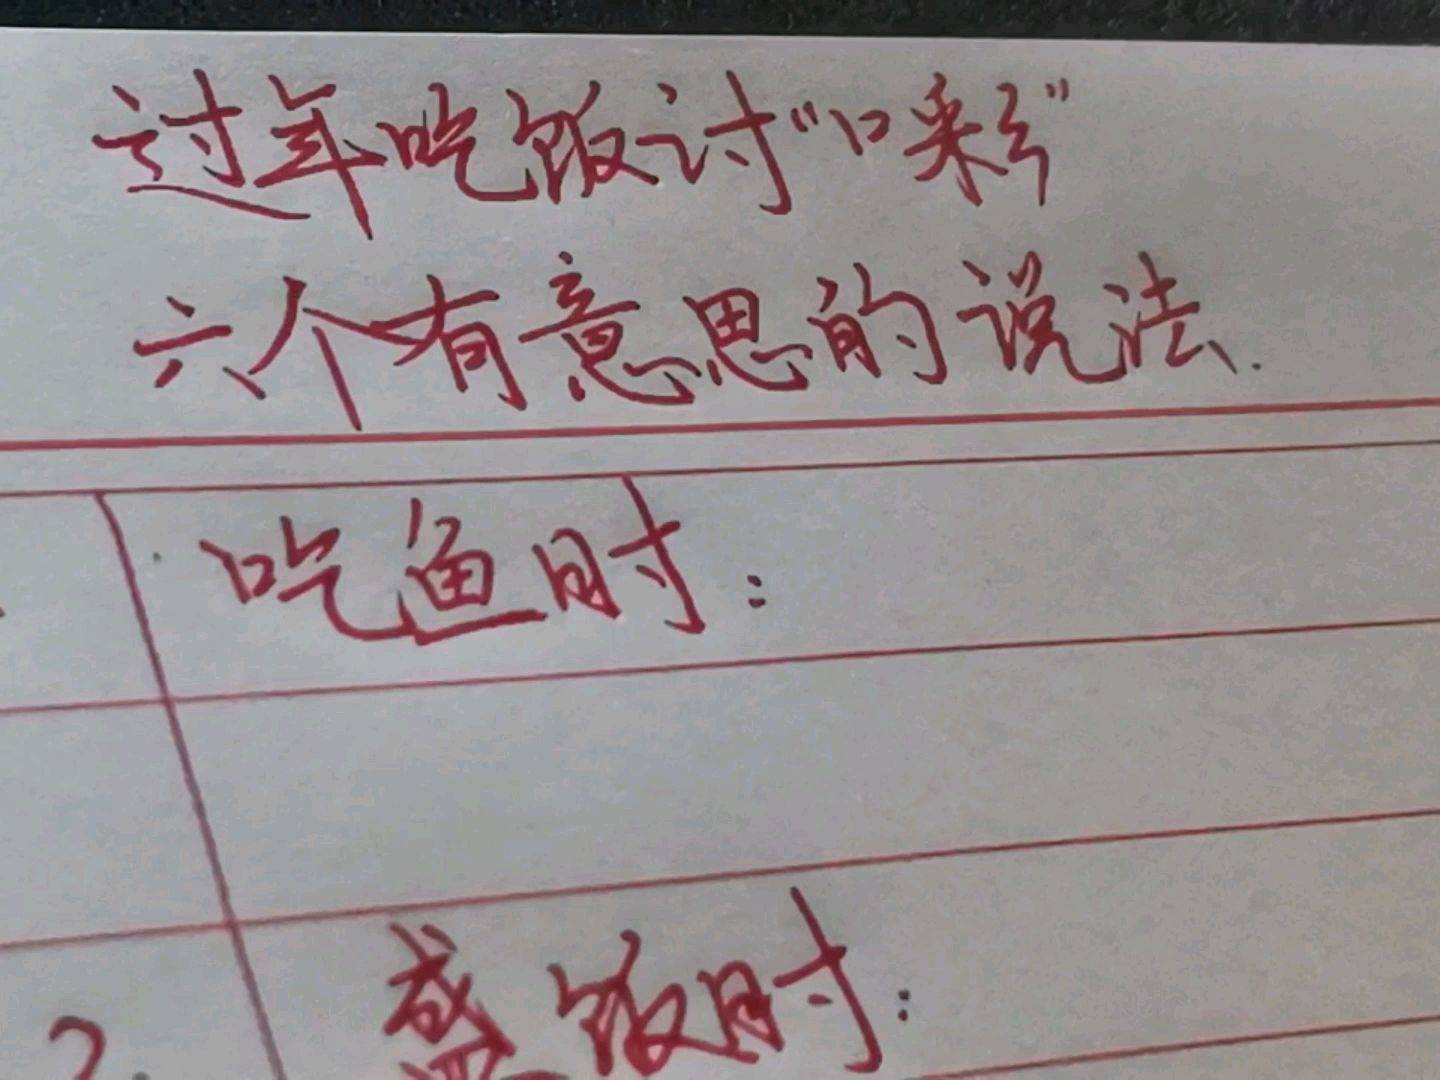 过年吃饭讨“口彩”
六个有意思的说法.
吃鱼时:
2. 盛饭时: